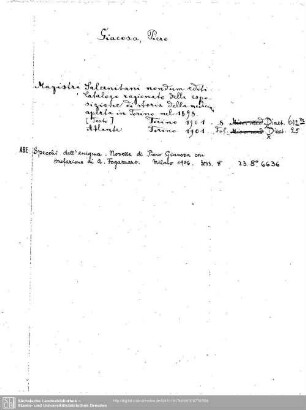 Giacosa, Piero
Magistri Salernitani nondum editi
Catalogo ragionato della espo-
sizione di storia della medicina
aperta in Torino nel 1898.
[Testo] Torino 1901. 8 Diaet. 612
Atlante Torino 1901. Fol. Diaet. 25
x
ABE Specchi dell'enigma. Novelle di Piero Giacosa con
prefazione di A. Fogazzaro. Milano 1906. 8 33. 8° 6636
Sächsische Landesbibliothek -
Staats- und Universitätsbibliothek Dresden